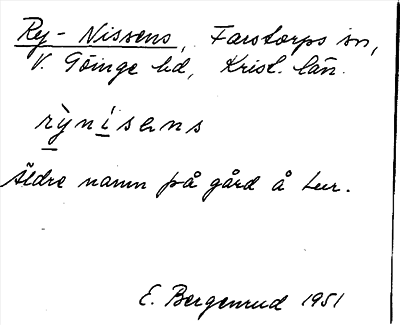 Ry-Nissens, Farstorps sn,
V. Göinge hd, Krist. län.
rỳnisens
Äldre namn på gård å Lur.
E. Bergenrud 1951